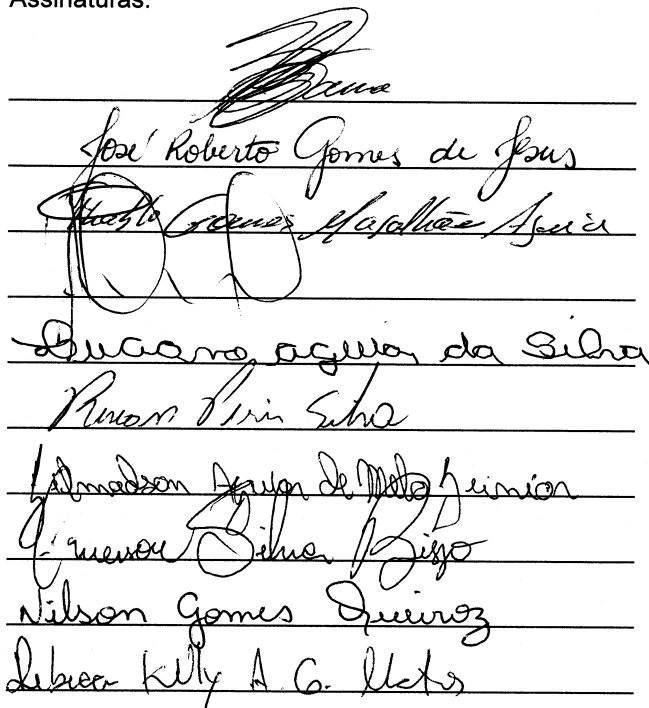 Assinaturas:
José Roberto Gomes de Jesus
Gomes Magalhães Aguiar
Luciano aguiar da Silva
Silva
Aguiar de Melo Junior
Emerson Silva Bispo
Nilson Gomes Queiroz
Kelly A. G. Matos